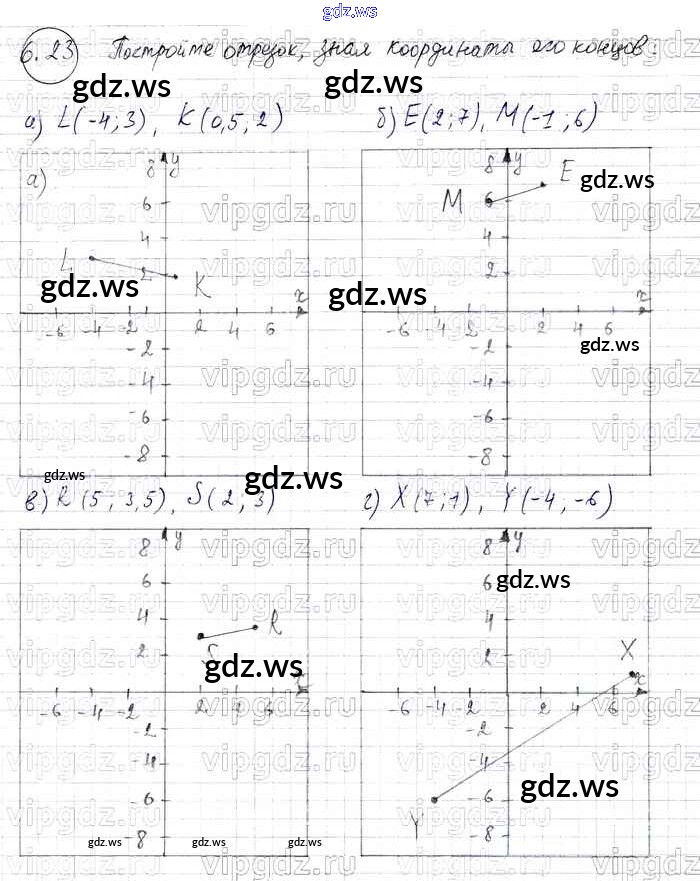 gdz.ws
6.23 Постройте отрезок, зная координаты его концов:
gdz.ws gdz.ws
а) L(-4; 3), K(0,5; 2) б) E(2; 7), M(-1; 6)
а) 8 y 8 y
E gdz.ws
6 M 6
4 4
L 2 K 2
gdz.ws gdz.ws
x x
-6 -4 -2 2 4 6 -6 -4 -2 2 4 6
-2 -2 gdz.ws
-4 -4
-6 -6
-8 -8
gdz.ws gdz.ws
в) R(5; 3,5), S(2; 3) г) X(7; 1), Y(-4; -6)
8 y 8 y
6 6 gdz.ws
4 R 4
2 S 2 X
gdz.ws
x x
-6 -4 -2 2 4 6 -6 -4 -2 2 4 6
-2 -2
-4 -4
-6 -6 gdz.ws
Y
-8 -8
gdz.ws gdz.ws gdz.ws
vipgdz.ru